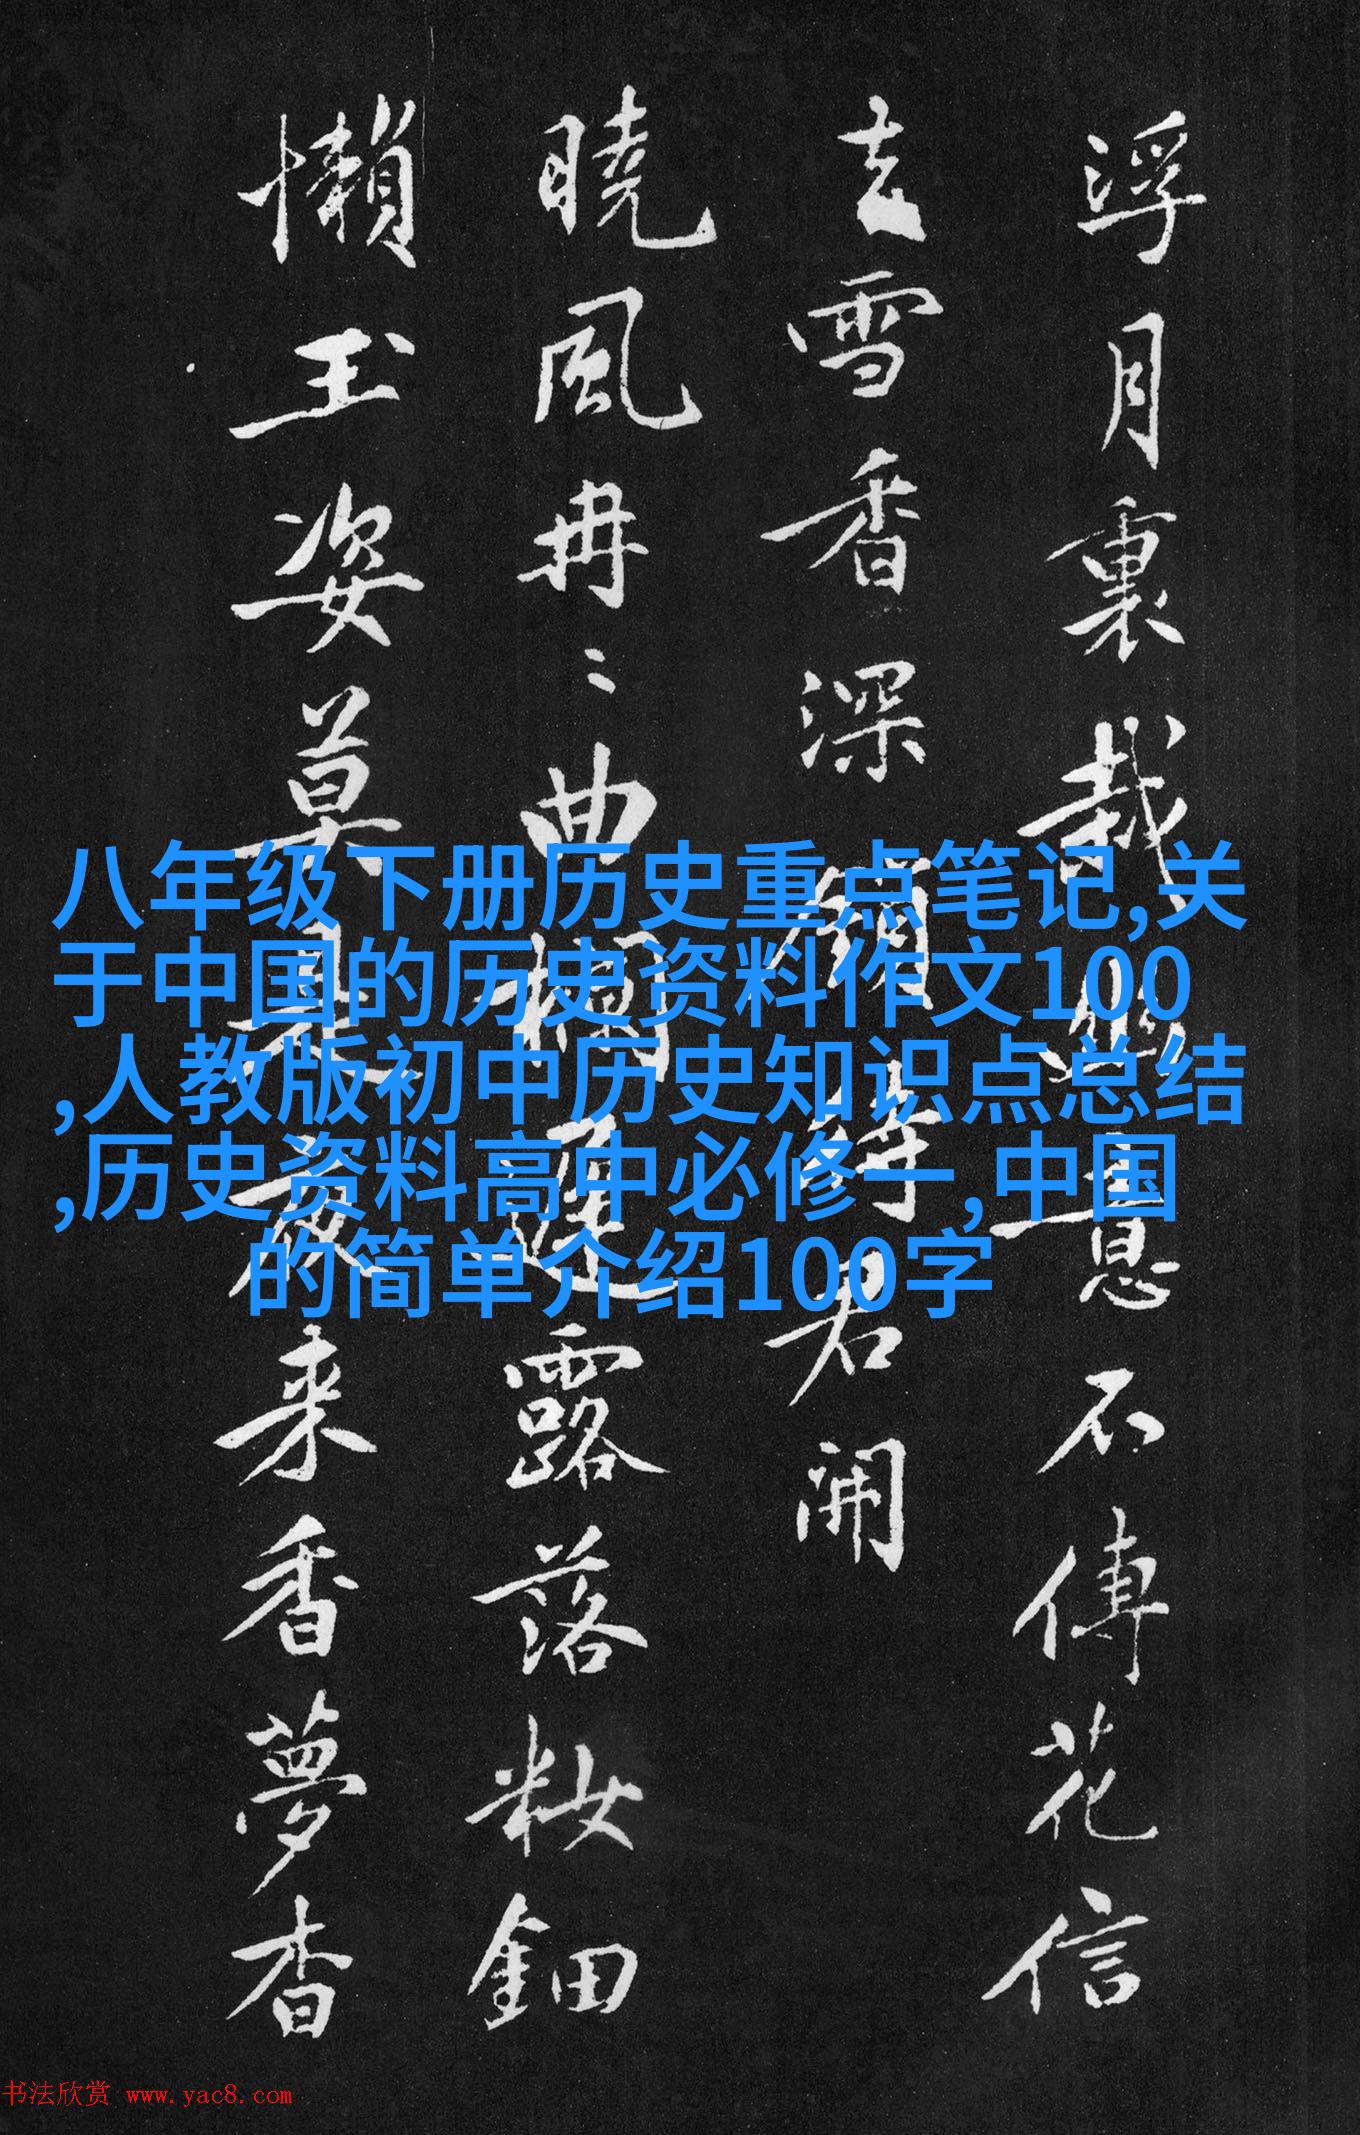 浮月裏 不傳花信
去雪香深鎖待君開
曉風冉〻曲欄邊露落粧鈿
懶玉姿莫是夜来香夢杳
八年级下册历史重点笔记,关
于中国的历史资料作文100
,人教版初中历史知识点总结
,历史资料高中必修一,中国
的简单介绍100字
书法欣赏 www.yac8.com